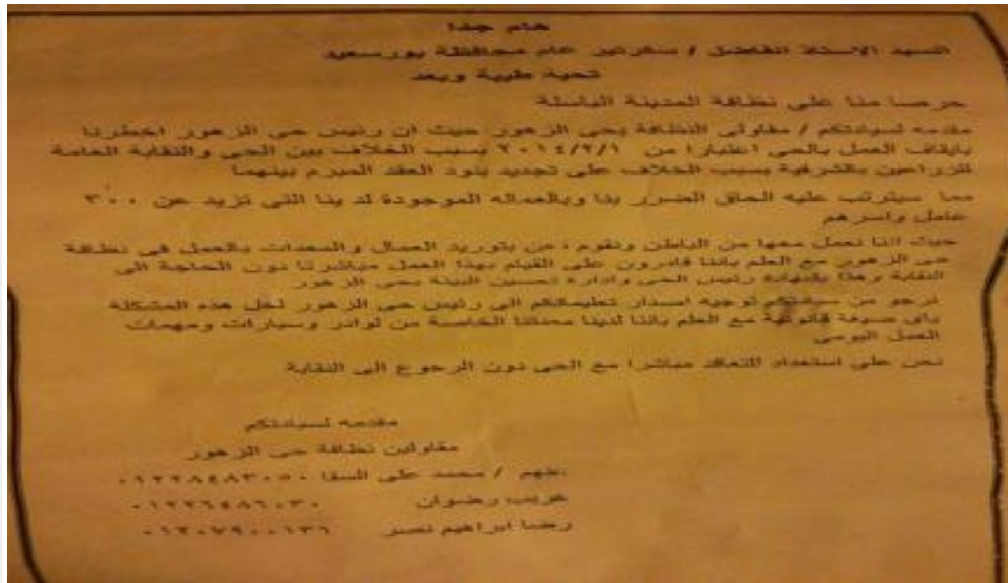 هام جدا
السيد الاستاذ الفاضل / سكرتير عام محافظة بورسعيد
تحية طيبة وبعد
حرصا منا على نظافة المدينة الباسلة
مقدمه لسيادتكم / مقاولى النظافة بحى الزهور حيث ان رئيس حى الزهور اخطرنا
بايقاف العمل بالحى اعتبارا من ٢٠١٤/٢/١ بسبب الخلاف بين الحى والنقابة العامة
للزراعين بالشرقية بسبب الخلاف على تجديد بنود العقد المبرم بينهما
مما سيترتب عليه الحاق الضرر بنا وبالعماله الموجودة لدينا التى تزيد عن ٣٠٠
عامل واسرهم
حيث اننا نعمل معها من الباطن ونقوم نحن بتوريد العمال والمعدات بالعمل فى نظافة
حى الزهور مع العلم باننا قادرون على القيام بهذا العمل مباشرتا دون الحاجة الى
النقابة وهذا بشهادة رئيس الحى وادارة تحسين البيئة بحى الزهور
نرجو من سيادتكم توجيه اصدار تعليماتكم الى رئيس حى الزهور لحل هذه المشكلة
بأى صيغة قانونية مع العلم باننا لدينا معداتنا الخاصة من لوادر وسيارات ومهمات
العمل اليومى
نحن على استعداد للتعاقد مباشرا مع الحى دون الرجوع الى النقابة
مقدمه لسيادتكم
مقاولين نظافة حى الزهور
عنهم / محمد على السقا ٠١٢٢٨٤٨٣٠٥٠
غريب رضوان ٠١٢٢٦٤٨٦٠٣٠
رضا ابراهيم نصر ٠١٢٠٧٩٠٠١٣٦